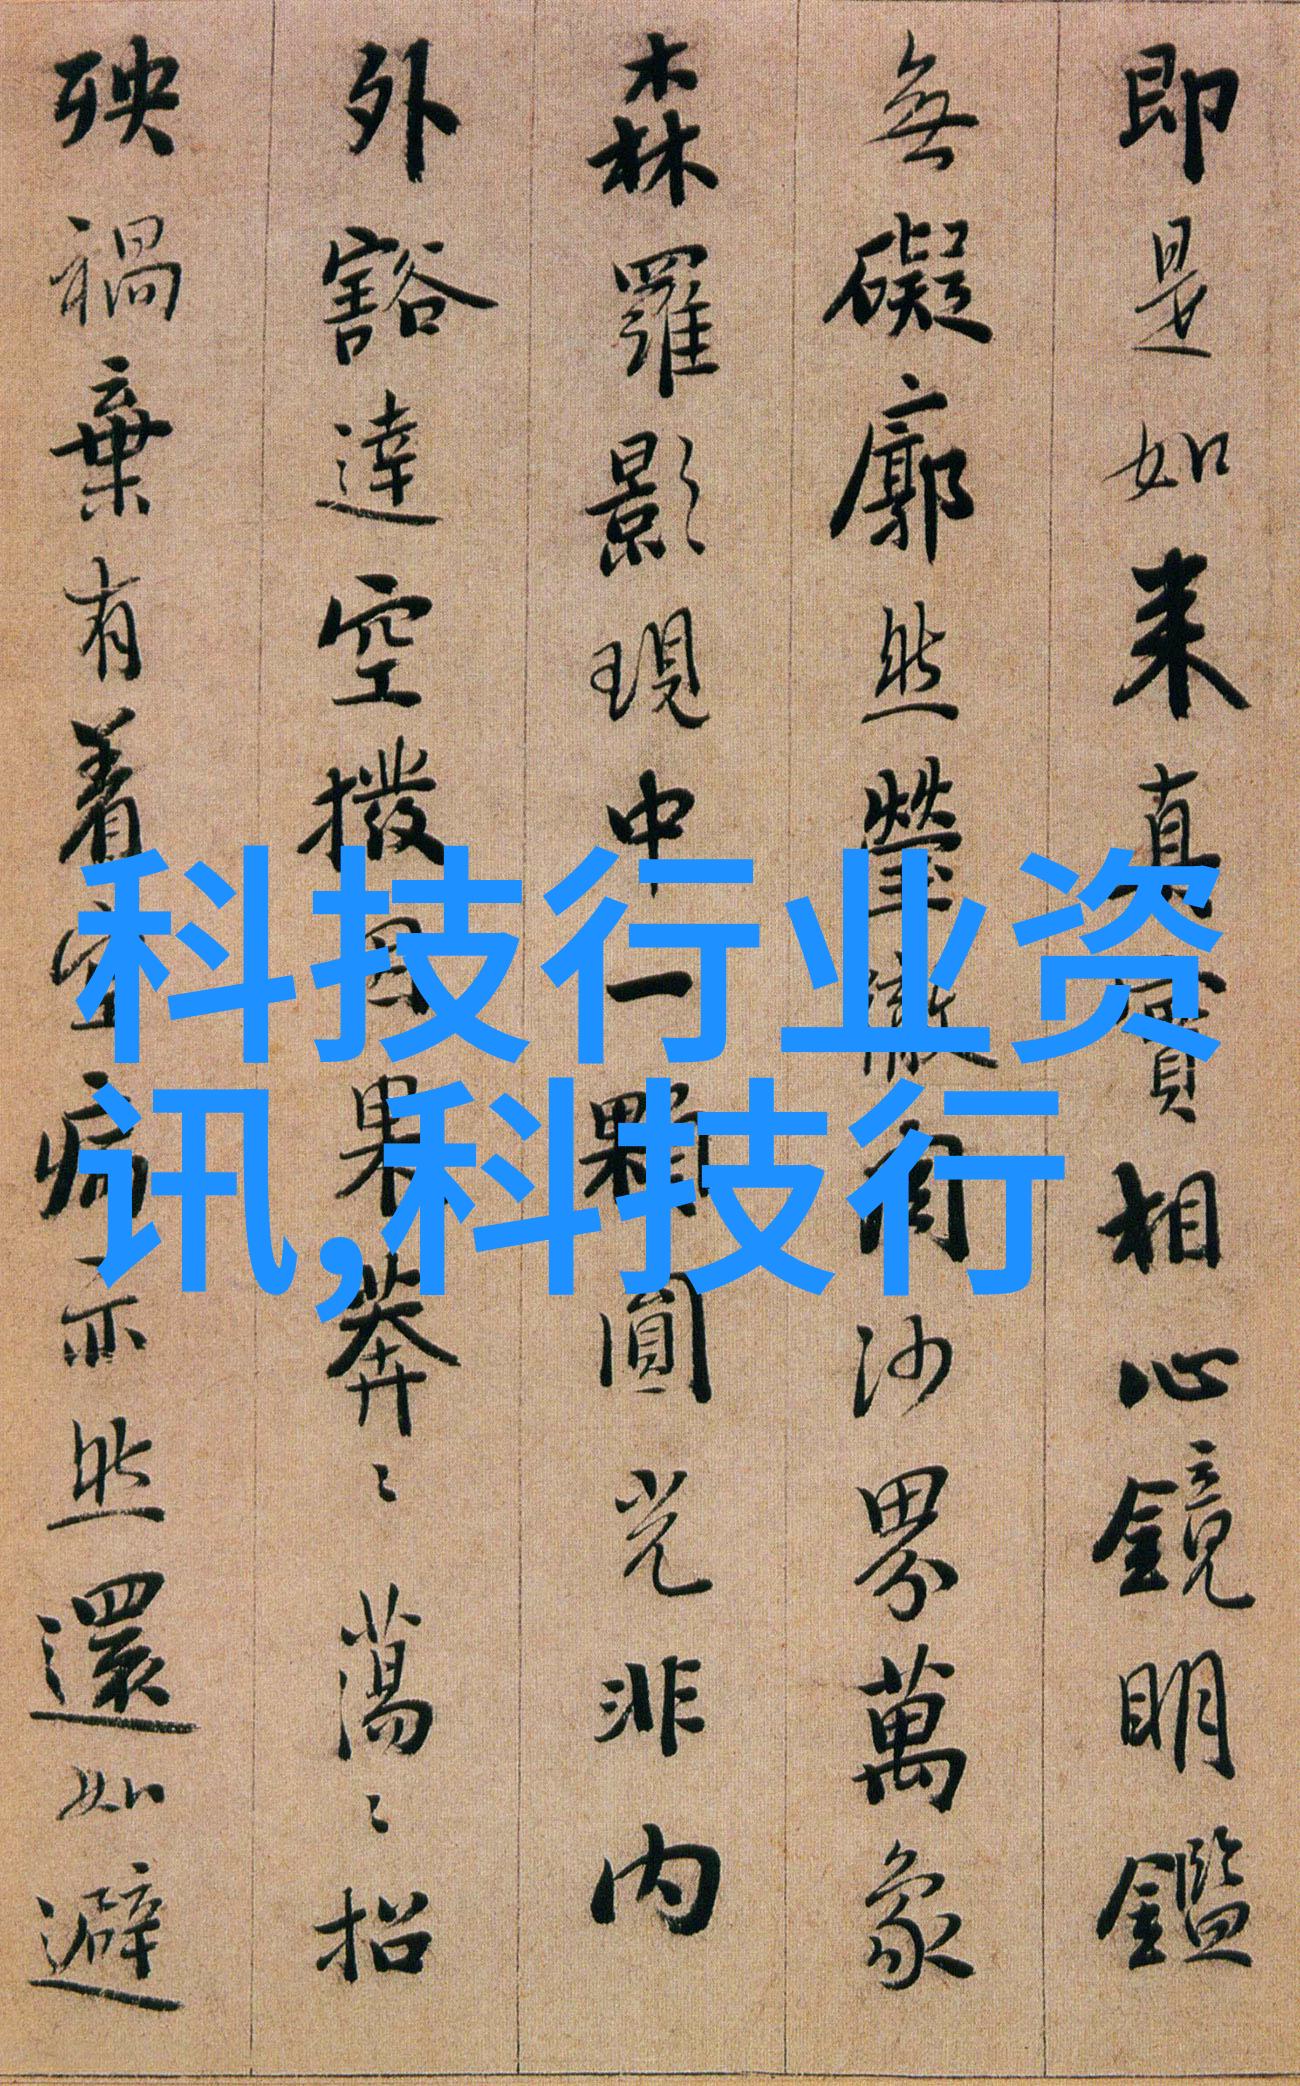 即是如来真實相心鏡明鑑
無礙廓然瑩徹周沙界萬象
森羅影現中一顆圓光非内
外豁達空撥因果莽〻蕩〻招
殃禍棄有着空病亦然還如避
科技行业资
讯,科技行